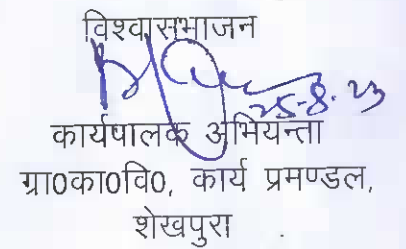 विश्वासभाजन
25-8-23
कार्यपालक अभियन्ता
ग्रा0का0वि0, कार्य प्रमण्डल,
शेखपुरा